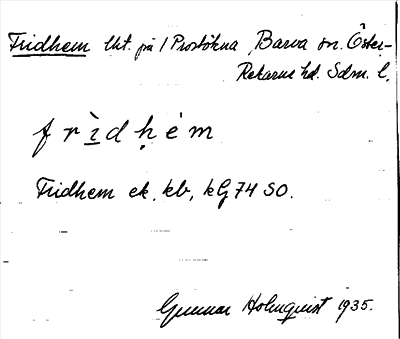 Fridhem lht. på 1 Prostökna, Barva sn. Öster-
Rekarne hd. Sdm. l.
frìdḥém
Fridhem ek. kb, kG 74 SO.
Gunnar Holmquist 1935.